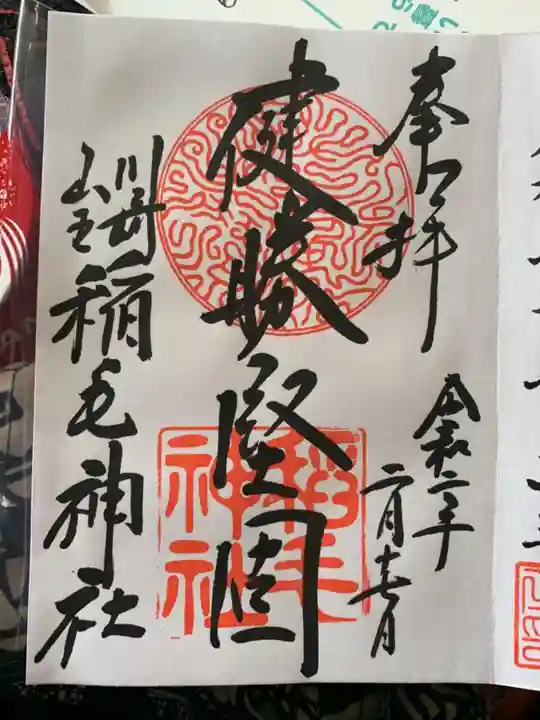 奉拝
令和二年
二月十七日
健勝堅固
川崎
山王
稲毛神社
稲毛
神社